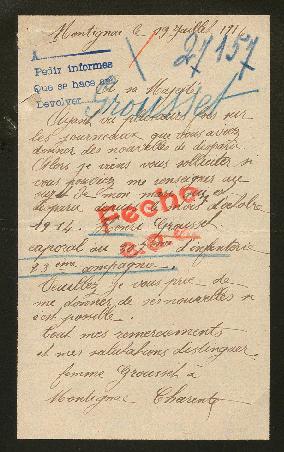 Montignac le 29 Juillet 191
27157
A
Pedir informes
Que se hace
Devolver
Sa Majesté
Grousset
Ayant vu plusieurs fois sur
les journeaux que vous aviez
donner des nouvelles de disparu
Alors je viens vous solliciter si
vous pouviez me renseigner au
sujet de mon mari qui est
disparu depuis le mois d'octobre
1914.
Grousset
Fecho
caporal au d'infanterie
23 eme compagnie.
Veuillez je vous prie de
me donner de ses nouvelles si
c'est possible.
tout mes remerciements
et mes salutations distinguer
femme Grousset à
Montignac Charente